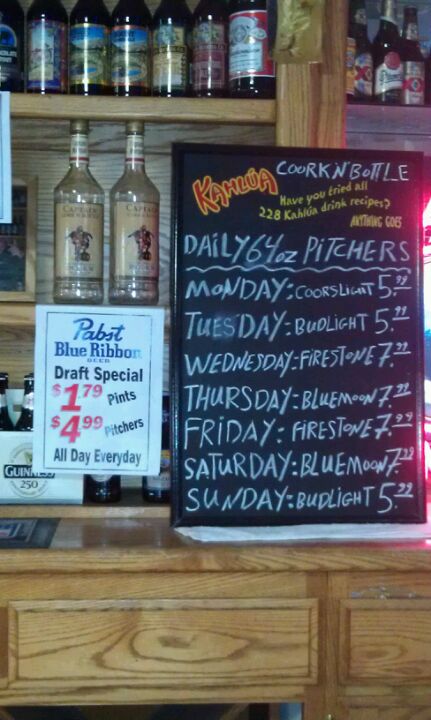 KAHLÚA
COORK'N'BOTTLE
Have you tried all
228 Kahlúa drink recipes?
ANYTHING GOES
DAILY 64oz PITCHERS
MONDAY: COORSLIGHT 5.99
TUESDAY: BUDLIGHT 5.99
WEDNESDAY: FIRESTONE 7.99
THURSDAY: BLUEMOON 7.99
FRIDAY: FIRESTONE 7.99
SATURDAY: BLUEMOON 7.99
SUNDAY: BUDLIGHT 5.99
Pabst
Blue Ribbon
BEER
Draft Special
$1.79 Pints
$4.99 Pitchers
All Day Everyday
CAPTAIN
CAPTAIN
GUINNESS
250